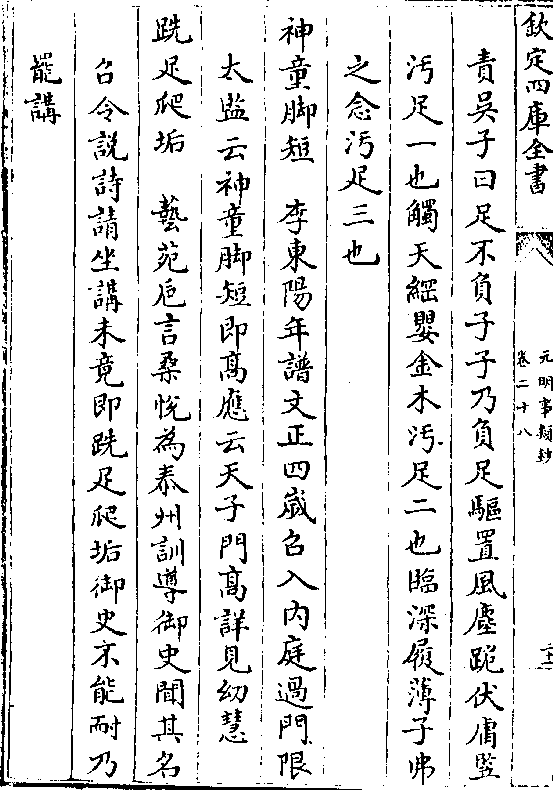 欽定四庫全書
元明事類鈔
卷二十八
責吳子曰足不負子子乃負足驅置風塵跪伏傭豎
汚足一也觸天綱嬰金木汚足二也臨深履薄子弗
之念汚足三也
神童脚短　李東陽年譜文正四歲召入內庭過門限
太監云神童脚短即髙應云天子門髙詳見幼慧
跣足爬垢　藝苑巵言桑悅為泰州訓導御史聞其名
召令説詩請坐講未竟即跣足爬垢御史不能耐乃
罷講